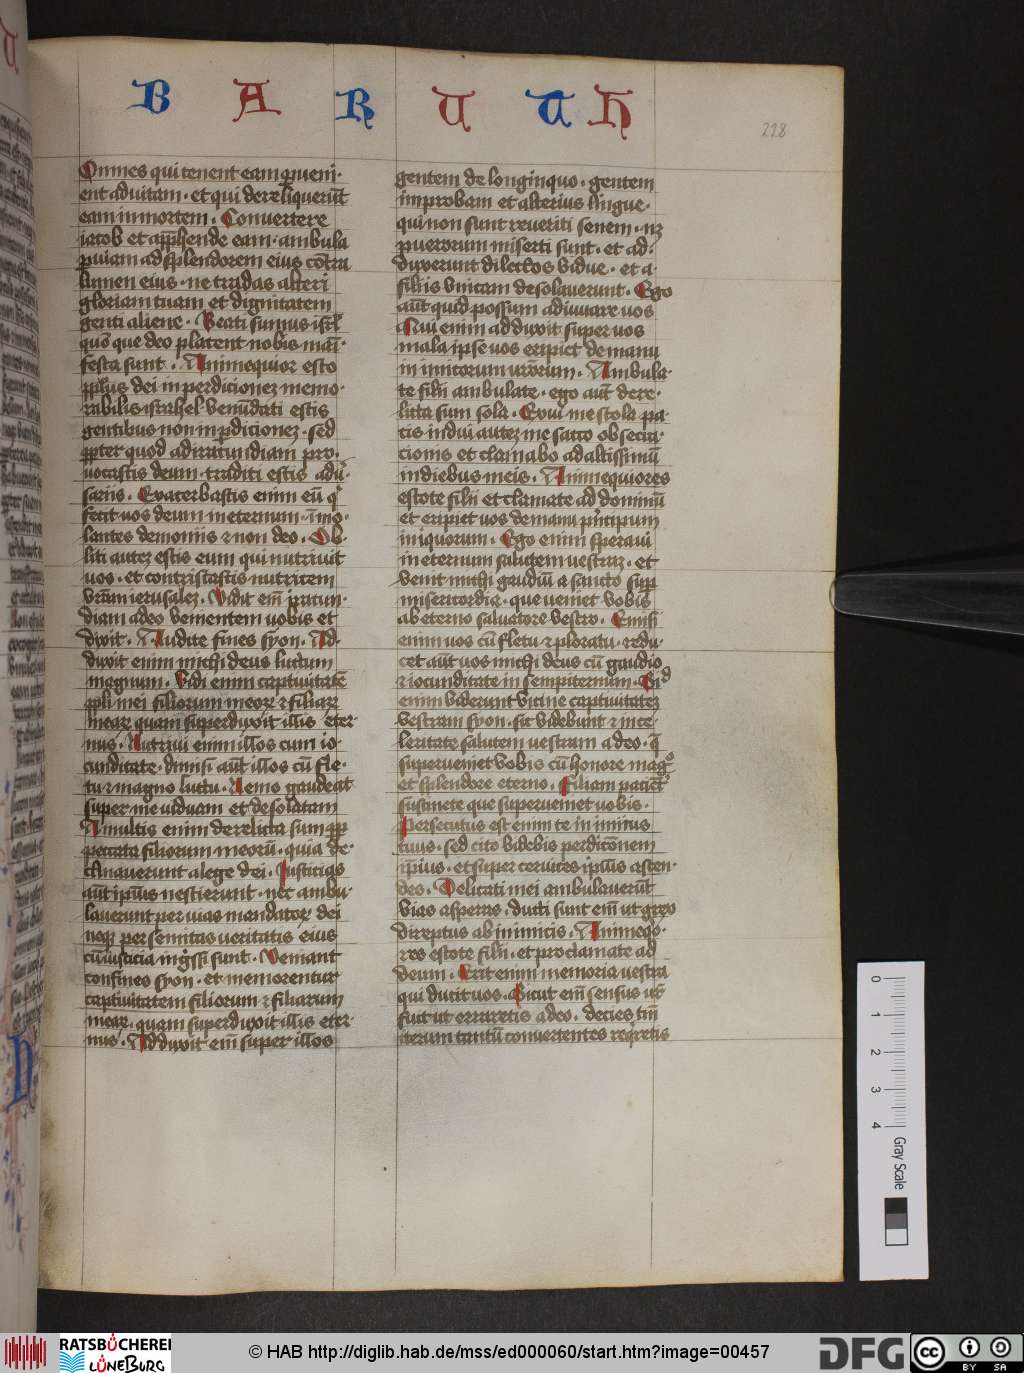 B A R U C H
228
Omnes qui tenent eam p̱ueni·
ent ad vitam · et qui dereliquerūt
eam in mortem . Convertere
iacob et app̱hende eam · ambula
p̱ uiam ad splendorem eius cōtra
lumen eius · ne tradas alteri
gloriam tuam et dignitatem
genti aliene · Beati sumus isrl̄
quō que deo placent nobis māi·
festa sunt . Animequior esto
pp̄lus dei in perdicionez memo·
rabilis israhel venūdati estis
gentibus non in p̱dicionez · sed
pp̱ter quod ad iracundiam pro·
uocastis deum · traditi estis adū·
sariis . Exacerbastis enim eū q̄
fecit vos deum in eternum · īmo·
lantes demoniis ⁊ non deo . Ob·
liti autez estis eum qui nutriuit
uos · et contristastis nutricem
vrām ierusalez . Vidit em̄ iracun·
diam a deo venientem uobis et
dixit . Audite fines syon . Ad·
duxit enim michi deus luctum
magnum . Vidi enim captiuitatē
ppl̄i mei filiorum meoꝝ ⁊ filiaꝝ
meaꝝ quam superduxit illis eter·
nus . Nutriui enim illos cum io·
cunditate · dimisi aūt illos cū fle·
tu ⁊ magno luctu . Nemo gaudeat
super me viduam et desolatam
A multis enim derelicta sum pp̱
peccata filiorum meorū · quia de·
clinauerunt a lege dei . Iusticias
aūt ip̄ius nescierunt · nec ambu·
lauerunt per vias mandatoꝝ dei
neqꝫ per semitas veritatis eius
cū iusticia īgressi sunt . Veniant
confines syon · et memorentur
captiuitatem filiorum ⁊ filiarum
meaꝝ · quam superduxit illis eter·
nus . Adduxit em̄ super illos
gentem de longinquo · gentem
improbam et alterius lingue·
qui non sunt reueriti senem · nꝫ
puerorum miserti sunt · et ad·
duxerunt dilectos vidue · et a
filiis vnicam desolauerunt . Ego
aūt quid possum adiuuare vos
Qui enim adduxit super vos
mala ipse vos eripiet de manu
in imicorum vrōrum . Ambula·
te filii ambulate · ego aūt dere·
licta sum sola . Exui me stola pa
cis indui autez me sacco obsecra·
cionis et clamabo ad altissimū
in diebus meis . Animequiores
estote filii et clamate ad dominū
et eripiet vos de manu pͥncipum
iniquorum . Ego enim speraui
in eternum salutem vestraz · et
venit michi gaudiū a sancto sup̱
misericordia · que ueniet vobis
ab eterno saluatore vestro . Emisi
enim vos cū fletu ⁊ ploratu · redu·
cet aūt vos michi deus cū gaudio
⁊ iocunditate in sempiternum . Sic̄
enim viderunt vicine captiuitatez
vestram syon · sic videbunt ⁊ in ce·
leritate salutem vestram a deo · q̄
superueniet vobis cū honore mag͡o
et splendore eterno . Filii am pacient͛
sustinete que superueniet uobis .
Persecutus est enim te inimicus
tuus · sed cito videbis perdicōnem
ip̄ius · et super ceruices ip̄ius ascen·
des . Delicati mei ambulauerūt
vias asperas · ducti sunt em̄ ut grex
direptus ab inimicis . Animeqͦ·
res estote filii · et proclamate ad
deum . Erit enim memoria vestra
qui ducit uos . Sicut em̄ sensus vr̄
fuit ut erraretis a deo · decies tm̄
iterum tantū conuertentes reqͥretis
0
1
2
3
4
Gray Scale
RATSBÜCHEREI
LÜNEBURG
© HAB http://diglib.hab.de/mss/ed000060/start.htm?image=00457
DFG
cc
BY SA